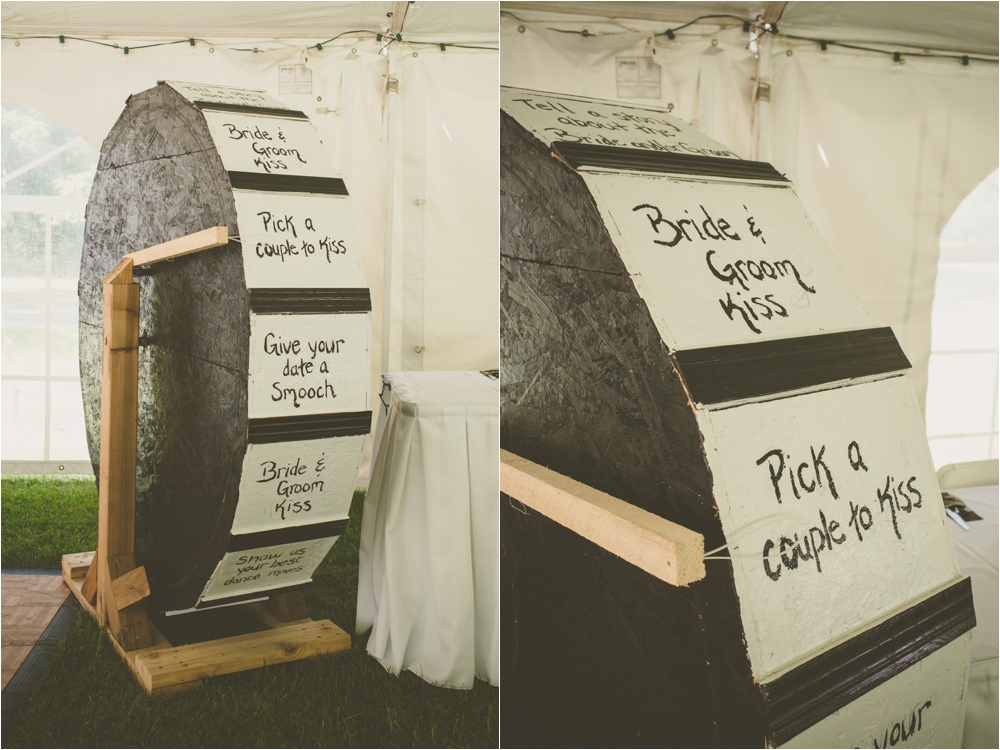 Tell a story
about the
Bride &
Groom
Kiss
Pick a
couple to Kiss
Give your
date a
Smooch
Bride &
Groom
Kiss
Show us
your best
dance moves
Tell a story
about the
Bride and/or Groom
Bride &
Groom
Kiss
Pick a
couple to Kiss
your